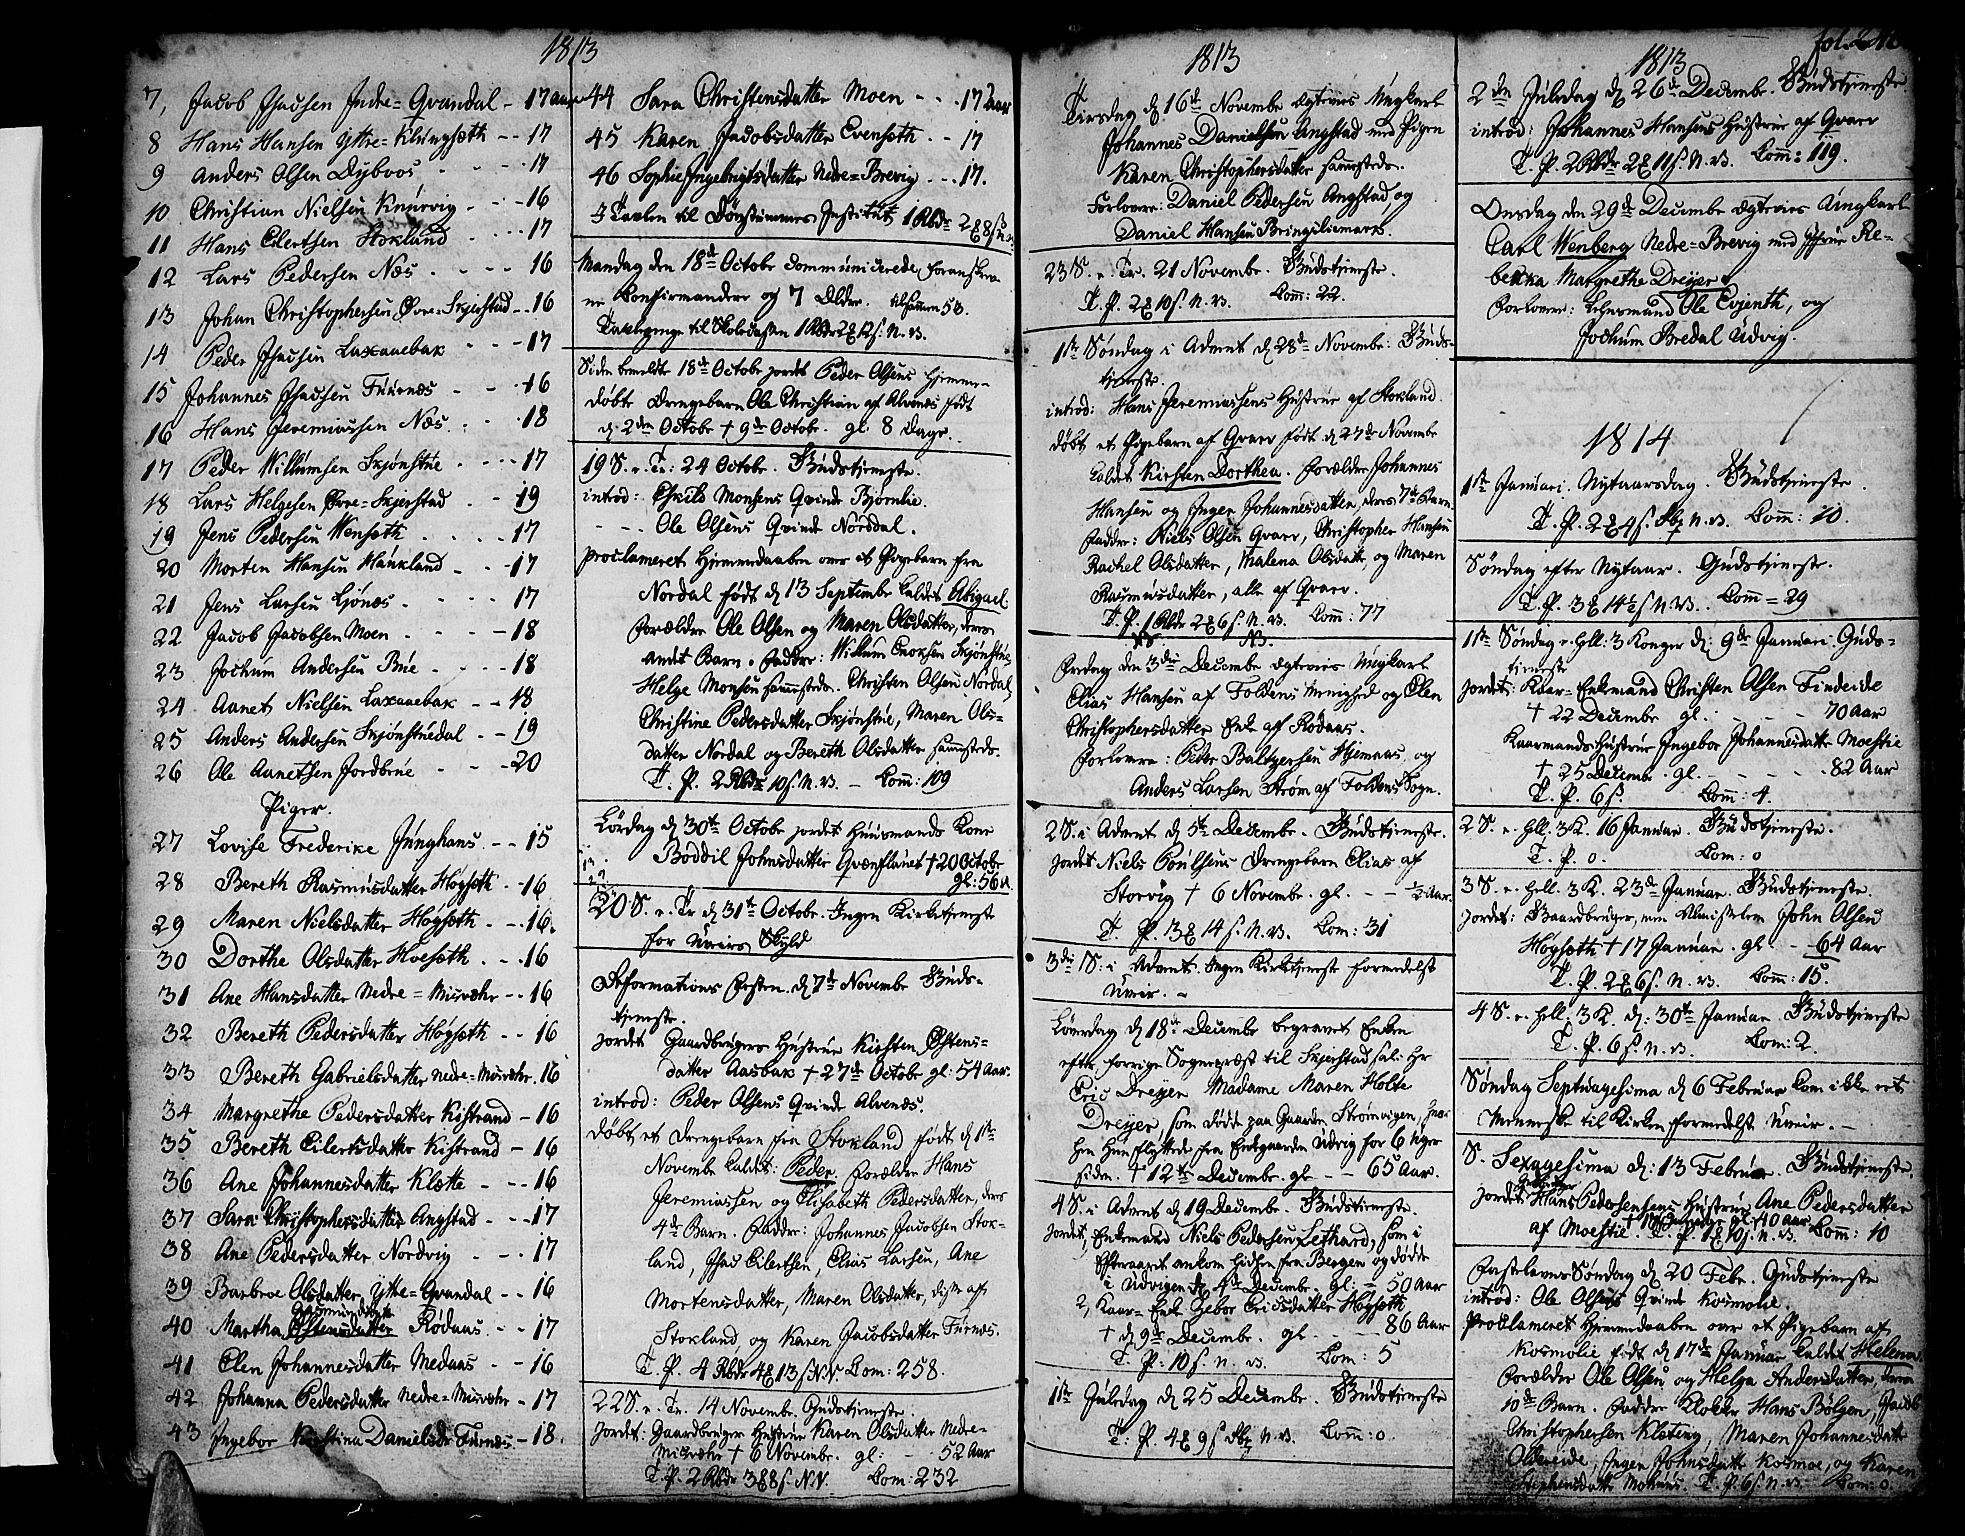 1813
7, Jacob Isacsen Indre=Qvandal - 17 aar
8 Hans Hansen Yttre=Klungseth - - 17
9 Anders Olsen Dybvos - - - 17
10 Christian Nielsen Knurvig - - - 16
11 Hans Eilertsen Stokland - - - 17
12 Lars Pedersen Næs - - - 16
13 Johan Christophersen Øvre=Skjerstad - - 16
14 Peder Isacsen Laxaaebak - - - 17
15 Johannes Isacsen Furnæs - - - 16
16 Hans Jeremiassen Næs - - - 18
17 Peder Willumsen Skjønstue - - - 17
18 Lars Helgesen Øvre=Skjerstad - 19
19 Jens Pedersen Wenseth - - - 17
20 Morten Hansen Haukland - - - 17
21 Jens Larsen Ljønæs - - - 17
22 Jacob Jacobsen Moen - - - 18
23 Jochum Andersen Bue - - - 18
24 Aanet Nielsen Laxaaebak - - 18
25 Anders Andersen Skjønstuedal - - 19
26 Ole Aanetsen Jordbrue - - - 20
Piger.
27 Lovise Frederike Junghans - - 15
28 Bereth Rasmusdatter Høgseth - 16
29 Maren Nielsdatter Høgseth - - 16.
30 Dorthe Olsdatter Hoeseth - - - 16
31 Ane Hansdatter Nedre=Misvær - - 16
32 Bereth Pedersdatter Høgseth - - 16
33 Bereth Gabrielsdatter Nedre=Misvær. 16
34 Margrethe Pedersdatter Kistrand - 16
35 Bereth Eilertsdatter Kistrand - 16
36 Ane Johannesdatter Klætte - - 16
37 Sara Christophersdatter Angstad - - - 17
38 Ane Pedersdatter Nordvig - - - 17
39 Barbroe Olsdatter Ytte=Qvandal - - 16
40 Martha Østensdatter Rødaas - - - 17
41 Elen Johannesdatter Medaas - - - 16
42 Johanna Pedersdatter Nedre=Misvær - 17
43 Ingebor Kirstina Danielsdr Furnæs - 18.
44 Sara Christensdatter Moen - - - 17 aar
45 Karen Jacobsdatter Evenseth - - 17
46 Sophie Ingebrigtsdatter Nedre=Brevig - - - 17.
Tavlen til Døvstummes Institut 1 Rbdr 2 ℳ 8 s. N.V.
Mandag den 18de Octobr communicerede foranskrev-
ne Confirmander og 7 Ældre. tilsamen 53.
Tavlepenge til Skolecassen 1 Rbdr 2 ℳ 12 s. N.V.
Siden bemeldte 18de Octobr jordet Peder Olsens hjemme-
døbte Drengebarn Ole Christian af Alvenæs født
d. 2den Octobr † 9de Octobr. gl. 8 Dage.
19 S. e. Tr: 24 October. Gudstjeneste.
introd: Eskild Monsens Qvinde Bjørnlie.
- - - Ole Olsens Qvinde Nordal.
proclameret Hjemmedaaben over et Pigebarn fra
Nordal født d 13 Septembr kaldet Abigael
Forældre Ole Olsen og Maren Olsdatter, deres
andet Barn. Faddr: Willum Enoksen Skjønstue,
Helge Monsen sammesteds. Christen Olsen Nordal,
Christine Pedersdatter Skjønstue, Maren Ols=
datter Nordal og Bereth Olsdatter sammesteds.
T. P. 2 Rbdr 10 s. N.V. - Com: 109
Lørdag d 30te Octobr jordet Huusmands Kone
Boddil Johnsdatter Qvænflaaet † 20 Octobr
gl: 56 A.
20 S. e. Tr d 31te Octobr. Ingen Kirketjeneste
for Uveirs Skyld
Reformations Festen. d 7de Novembr Guds-
tjeneste.
jordet Gaardbrugers Hustrue Kirsten Østens=
datter Aasbak † 27de Octobr gl: 54 Aar.
introd: Peder Olsens Qvinde Alvenæs.
døbt et Drengebarn fra Stokland født d 1te
Novembr kaldet: Peder. Forældre Hans
Jeremiassen og Elisabeth Pedersdatter, deres
4de Barn. Faddr: Johannes Jacobsen Stok-
land, Isac Eilertsen, Elias Larsen, Ane
Mortensdatter, Maren Olsdatter, disse af
Stokland, og Karen Jacobsdatter Furnæs.
T. P. 4 Rbdr 4 ℳ 13 s N.V. Com: 258.
22 S. e. Tr. 14 Novembr. Gudstjeneste
jordet: Gaardbruger Hustrue Karen Olsdatter Nedre-
Misvær † 6 Novembr. gl. - 52 Aar
T. P. 2 Rbdr 3 ℳ 8 s. N.V. Com: 232
1813
Tirsdag d 16de Novembr ægteviet Ungkarl
Johannes Danielsen Angstad med Pigen
Karen Christophersdatter sammesteds.
Forlovere: Daniel Pedersen Angstad, og
Daniel Hansen Bringsliemark.
23 S. e. Tr. 21 Novembr. Gudstjeneste.
T. P. 2 ℳ 10 s. N.V. Com: 22.
1te Søndag i Advent d 28de Novembr. Guds-
tjeneste.
introd: Hans Jeremiassens Hustrue af Stokland.
døbt et Pigebarn af Qvarv født d 27de Novembr
kaldet Kirsten Dorthea. Forældre Johannes
Hansen og Inger Johannesdatter, deres 7de Barn.
Faddre: Niels Olsen Qvarv, Christopher Hansen
Rachel Olsdatter, Malena Olsdatt, og Maren
Rasmusdatter, alle af Qvarv.
T. P. 1 Rbdr 2 ℳ 6 s. N.V. Com: 77
Fredag den 3die Decembr ægteviet Ungkarl
Elias Hansen af Foldens Menighed og Elen
Christophersdatter Enke af Rødaas.
Forlovere: Peder Baltzersen Hjemaas og
Anders Larsen Strøm af Foldens Sogn.
2 S. i Advent d 5te Decembr. Gudstjeneste.
jordet Niels Poulsens Drengebarn Elias af
Storvig † 6 Novembr. gl. - - ½ Aar.
T. P. 3 ℳ 14 s. N.V. Com: 31
3die S. i Advent. Ingen Kirketjeneste formedelst
Uveir. -
Løverdag d 18de Decembr begravet Enken
efter forrige Sognepræst til Skjerstad sal: Hr
Eric Dreyer Madame Maren Holte
Dreyer, som døde paa Gaarden Strømvigen, hvor
hen Hun flyttede fra Enkegaarden Udvig for 6 Uger
siden. † 12te Decembr. gl - - 65 Aar.
4 S. i Advent d 19 Decembr. Gudstjeneste.
jordet, Enkemand Niels Pedersen Lethard, som i
Efteraaret ankom hidhen fra Bergen og døde
i Udvigen d 4de Decembr. gl: - 50 Aar
2, Kaar=Enke Gebor Ericsdatter Høgseth
† d 9de Decembr. gl. - - - 86 Aar
T. P. 10 s. N.V. Com: 5
1te Juledag d 25 Decembr. Gudstjeneste
T. P. 4 ℳ 9 s Sbz N.V. Com: 0
1813
2den Juledag d 26de Decembr. Gudstjeneste.
introd: Johannes Hansens Hustrue af Qvarv
T. P. 2 Rbdr 2 ℳ 11 s. N.V. Com: 119.
Onsdag den 29de Decembr ægteviet Ungkarl
Carl Wenberg Nedre=Brevig med Jfrue Re-
bekka Margrethe Dreyer
Forlovere: Lehnsmand Ole Evjenth, og
Jochum Bredal Udvig.
1814
1te Januari Nytaarsdag. Gudstjeneste.
T. P. 2 ℳ 4 s. Sbz N.V. Com: 10.
Søndag efter Nytaar. Gudstjeneste.
T. P. 3 ℳ 14½ s N.V. Com = 29
1te Søndag e. Hell: 3 Konger d: 9de Januari Guds-
tjeneste
jordet: Kaar=Enkemand Christen Olsen Findeide
† 22 Decembr gl. - - - 70 Aar
Kaarmands Hustrue Ingebor Johannesdatter Moestie
† 25 Decembr. gl. - - - 82 Aar
T. P. 6 s. Com: 4.
2 S. e. Hell. 3 K. 16 Januar. Gudstjeneste.
T. P. 0. Com: 0
3 S. e. Hell. 3 K. 23de Januar. Gudstjeneste.
jordet: Gaardbruger, nu Almisselem John Olsen
Høgseth † 17 Januar. gl. - - 64 Aar
T. P. 2 ℳ 6 s. N.V. Com: 15.
4 S. e. Hell. 3 K. d: 30te Januar Gudstjeneste
T. P. 6 s. N.V. Com: 2.
Søndag Septuagesima d 6 Februar kom ikke et
Menneske til Kirken formedelst Uveir. -
S. Sexagesima d: 13 Februar. Gudstjeneste.
jordet: Hans Pedersens Hustrue Ane Pedersdatter
af Moestie. T. P. 1 ℳ 10 s. N.V. Com: 10
Fastelavns Søndag d 20 Febr. Gudstjeneste
introd: Ole Olsens Qvinde Kosmolie.
proclameret Hjemmedaaben over et Pigebarn af
Kosmolie født d 17de Januar kaldet Helena.
Forældre Ole Olsen og Helga Andersdatter, deres
10de Barn. Faddre Klokker Hans Bølgen, Jacob
Christophersen Kleting, Maren Johannesdatt
Oldereide, Inger Johnsdatt Kosmoe, og Karen
Stephensdatt Mohus. T. P. 6 s. N.V. Com: 0.